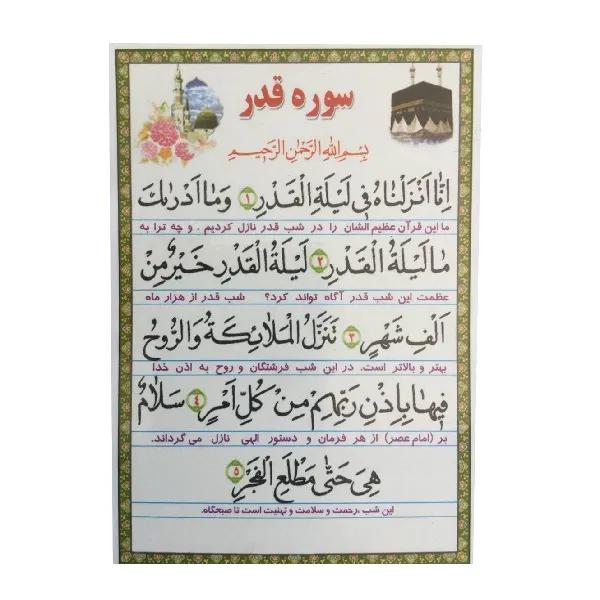 سوره قدر
بِسْمِ اللهِ الرَّحْمٰنِ الرَّحِيمِ
اِنّا اَنْزَلْناهُ فِی لَیْلَةِ الْقَدْرِ ۱ وَما اَدْریٰكَ
ما این قرآن عظیم الشان را در شب قدر نازل کردیم . و چه ترا به
ما لَیْلَةُ الْقَدْرِ ۲ لَیْلَةُ الْقَدْرِ خَیْرٌ مِنْ
عظمت این شب قدر آگاه تواند کرد؟ شب قدر از هزار ماه
اَلْفِ شَهْرٍ ۳ تَنَزَّلُ الْمَلائِکَةُ وَالرُّوحُ
بهتر و بالاتر است. در این شب فرشتگان و روح به اذن خدا
فِیها بِاِذْنِ رَبِّهِمْ مِنْ کُلِّ اَمْرٍ ۴ سَلامٌ
بر (امام عصر) از هر فرمان و دستور الهی نازل می گرداند.
هِیَ حَتّیٰ مَطْلَعِ الْفَجْرِ ۵
این شب ،رحمت و سلامت و تهنیت است تا صبحگاه.